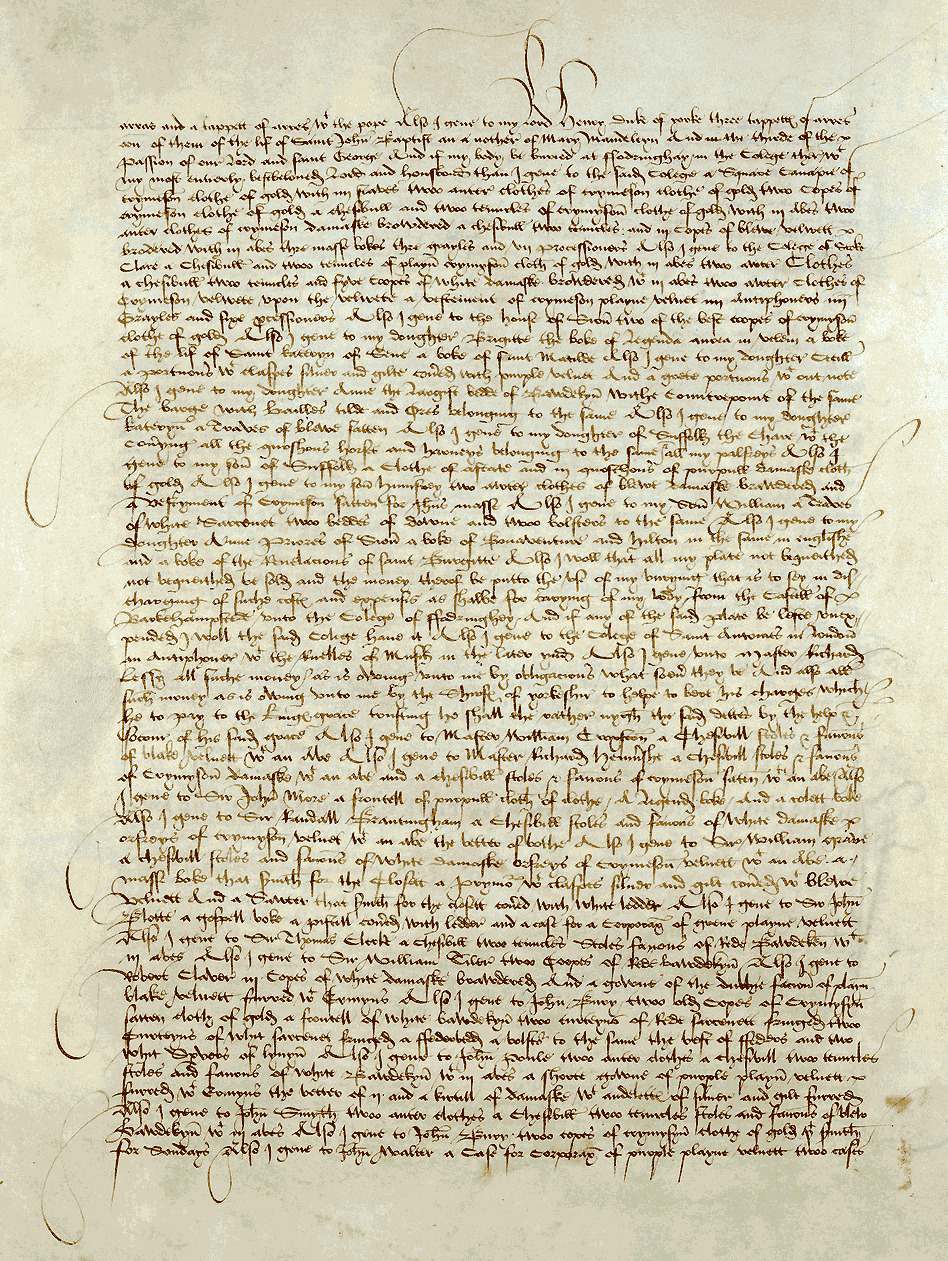 arras and a tappett of arres wt the pope Also I geue to my lord Henry Duke of yorke three tappettes of arres
oon of them of the lif of Saint John Baptist an a nother of Mary Maudeleyn And in the thirde of the
Passion of our lord and saint George And if my body be buried at ffodringhay in the Colege ther wt
my most entierly best beloued Lord and housbond than I geue to the said Colege a Square Canapie of
crymeson clothe of gold with iiij staves twoo auter clothes of crymeson clothe of gold twoo Copes of
crymeson clothe of gold a chesibull and twoo tenucles of crymyson clothe of gold with iij abes twoo
auter clothes of crymeson damaske browdered a chesibull twoo tenucles and iij Copes of blewe velwett
brodered with iij abes thre masse bokes thre grayles and vij processioners Also I geue to the Colege of Stoke
Clare a Chesibull and twoo tenucles of playn crymyson cloth of gold with iij abes twoo auter Clothes
a chesibull twoo tenucles and fyve Coopes of white damaske browdered wt iij abes twoo awter Clothes of
Crymeson velwete upon the velwete a vestement of crymeson playne velvet iiij Antiphoners iiij
Grayles and sixe processioners Also I geue to the house of Sion two of the best coopes of crymyson
clothe of gold Also I geue to my doughter Brigitte the boke of legenda aurea in velem a boke
of the lif of Saint Kateryn of Sene a boke of saint Matilde Also I geue to my doughter Cecill
a portuous wt claspes siluer and gilte couered with purple veluet And a grete portuous wt out note
Also I geue to my doughter Anne the largest bedde of Bawdekyn withe Countrepoint of the same
The barge with bailles tilde and ores belonging to the same Also I geue to my doughter
Kateryn a Traves of blewe satten Also I geue to my doughter of Suffolk the Chare wt the
Coueryng all the quoshons horses and harneys belonging to the same all my palfreys Also I
geue to my son of Suffolk a Clothe of astate and iij quoschons of purpull damask cloth
of gold Also I geue to my son Humfrey two awter clothes of blewe damaske browdered and
a vestyment of Crymeson satten for Ihus masse Also I geue to my son William a Traves
of white Sarcenet twoo beddes of downe and twoo bolsters to the same Also I geue to my
doughter Anne Priores of Sion a boke of Bonaventure and Hilton in the same in englishe
and a boke of the Reuelacions of saint Burgitte Also I woll that all my plate not bequeithed
not bequeithed be sold and the money therof be putto the use of my burying that is to sey in dis
chargeing of suche costes and expensis as shalbe for carying of my body from the Castell of
Barkehampstede unto the Colege of ffodringhey And if any of the said plate be lefte unex
pended I woll the said Colege haue it Also I geue to the Colege of saint Antonies in london
an Antiphoner wt the Ruelles of Musik in the later ynd Also I geue unto Master Richard
Lessy all suche money as is owing unto me by obligacions what soeuer they be And also all
suche money as is owing unto me by the Shiref of yorkeshire to helpe to bere his charges which
he to pay to the kinges grace trusting he shall the rather nygh the said dettes by the help &
socour of his said grace Also I geue to Master William Croxston a Chesibull stoles & fanons
of blake velwett wt an abe Also I geue to Master Richard Henmershe a Chesibull stoles & fanons
of Crymyson damaske wt an abe and a chesibill stoles & fanons of crymeson saten wt an abe Also
I geue to Sir John More a frontell of purpull cloth of clothe A legend boke And a colett boke
Also I geue to Sir Randall Brantingham a Chesibill stoles and fanons of white damaske
orfreys of crymyson veluet wt an abe the better of bothe Also I geue to Sir William Grave
a Chesibill stoles and fanons of white damaske orfreys of Crymeson velvett wt an abe a
masse boke that serueth for the Closett a prymer wt claspes siluer and gilt couered wt blewe
veluett And a Sawter that serueth for the closett couered with white ledder Also I geue to Sir John
Blotte a gospell boke a pistill couered with ledder and a case for a Corporax of grene playne velvett
Also I geue to Sir Thomas Clerk a Chesibill twoo tenucles stoles fanons of Rede Bawdeken wt
iij abes Also I geue to Sir William Tiler twoo Coopes of Rede bawdekyn Also I geue to
Robert Claver iij Copes of white damaske browdered And a gowne of the Duchie facion of playn
blake velvett furred wt Ermyns Also I geue to John Bury twoo old Copes of Crymysyn
satten cloth of gold a frontell of white bawdekyn twoo curteyns of Rede sarcenett fringed twoo
Curteyns of whit sarcenet fringed a ffederbed a bolster to the same the best of ffeders and two
whit Spervers of lynyn Also I geue to John Poule twoo auter clothes a Chesibull twoo tenucles
stoles and fanons of white Bawdekyn wt iij abes a shorte gowne of purple playn velvett
furred wt Ermyns the better of ij and a kirtill of damaske wt andelettes of siluer and gilt furred
Also I geue to John Smyth twoo auter clothes a Chesibull twoo tenucles stoles and fanons of blew
Bawdekyn wt iij abes Also I geue to John Bury twoo copes of crymysyn clothe of gold that serueth
for Sondays Also I geue to John Walter a Case for Corporax of purple playne velvett twoo cases